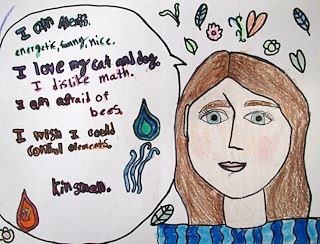 I am Alexis.
energetic, funny, nice.
I love my cat and dog.
I dislike math.
I am afraid of
bees.
I wish I could
control elements.
kinsman.